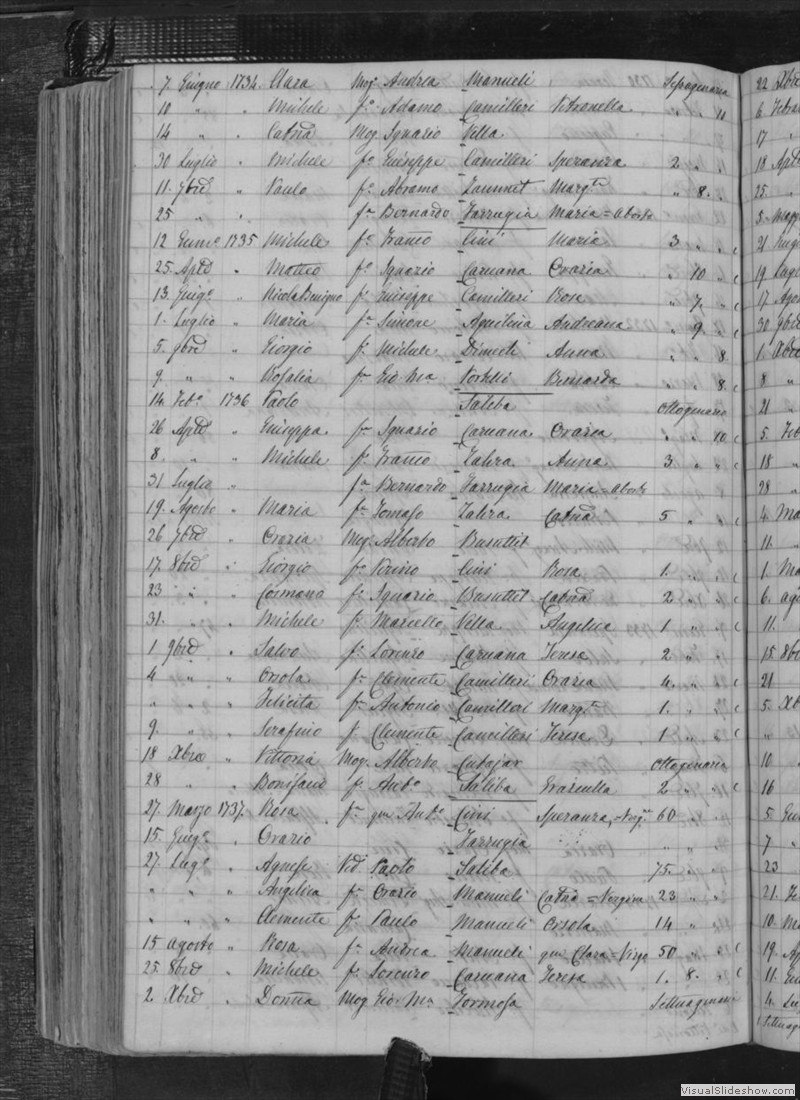 7 Giugno 1734. Clara Mog. Andrea Manueli Sefragenaria
10 " " Michele f.o Adamo Camilleri Petronella " " 11
14 " " Catna Mog. Ignazio Vella
30 Luglio " Michele fo Giuseppe Camilleri Speranza 2 " "
11. 9brd " Paulo fo Abramo Zammet Margta " 8. "
25 " " fa Bernardo Farrugia Maria = Aborto
12 Genno 1735 Michele fo Franco Cini Maria 3 " "
25. Aple " Matteo fo Ignazio Caruana Orazia " 10 "
13. Giugo " Nicola Benigno fo Giuseppe Camilleri Rosa " 7. "
1. Luglio " Maria fa Simone Aquilina Andreana " 9. "
5. 9bre " Giorgio fo Michele Dimeti Anna " " 8.
9. " " Rosalia fa Gio Mea Portelli Bernarda " " 8.
14. Febo 1736 Paolo Saliba Ottogenario
26 Aple " Giuseppa fa Ignazio Caruana Orazia " " 10
8. " " Michele fo Franco Zahra Anna 3 " "
31 Luglio " fa Bernardo Farrugia Maria = Aborto
19. Agosto " Maria fa Tomaso Zahra Catna 5 " "
26 7bre " Orazia Mog. Alberto Busuttil
17. 8bre " Giorgio fo Cini Rosa 1. " "
23 " " Cosmana fa Ignazio Busuttil Catna 2 " "
31. " " Michele fo Marcello Vella Angelica 1 " "
1 9bre " Salvo fo Lorenzo Caruana Teresa 2 " "
4 " " Orsola fa Clemente Camilleri Orazia 4. " "
" " " Felicita fa Antonio Camilleri Margta 1. " "
9. " " Serafino fo Clemente Camilleri Teresa 1 " "
18 Xbre " Vittoria Mog. Alberto Cutajar Ottogenaria
28 " " Bonifacio fo Anto Saliba Graziulla 2 " "
27. Marzo 1737. Rosa fa qm Anto Cini Speranza, 60
15. Giugo " Orazio Farrugia " " "
27. Lugo " Agnese Ved. Paolo Saliba 75. " "
" " " Angelica fa Orazio Manueli Catna = Vergine 23 " "
" " " Clemente fo Paulo Manueli Orsola 14 " "
15 agosto " Rosa fa Andrea Manueli qm Clara = Virgo 50 " "
25. 8bre " Michele fo Lorenzo Caruana Teresa 1. 8. "
2. Xbre " Donna Mog Gio: Ma Formosa Settuagenaria
22 Xbre
6
17 "
18 Aple
25. "
3.
21
19
17
30 9bre
1. Xbre
8 "
21 "
5. Feb
18 "
28 "
4. Ma
11. "
1. Ma
6. ago
11.
15. 8bre
21
5. Xb
"
10 "
16
5.
7 "
23
21.
10.
19.
11.
4.
VisualSlideshow.com